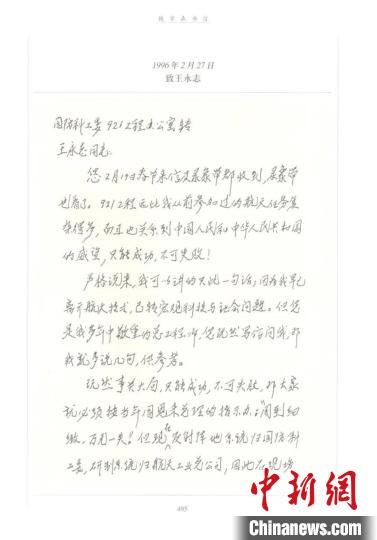 钱学森书信
1996年2月27日
致王永志
国防科工委921工程办公室转
王永志同志:
您2月19日春节来信及录像带都收到,录像带
也看了。921工程远比我从前参加过的航天任务复
杂得多,而且也关系到中国人民和中华人民共和国
的威望,只能成功,不可失败!
严格说来,我可以讲的只此一句话;因为我早已
离开航天技术,已转宏观科技与社会问题。但您
是我多年中敬重的总工程师,您既然写信问我,那
我就多说几句,供参考。
既然事关大局,只能成功,不可失败,那大家
就必须按当年周恩来总理的指示办:“周到细
致,万无一失!但现在发射阵地系统归国防科
工委,研制系统归航天工业总公司,因此在现场
495
中新网
www.
Chinanews.com